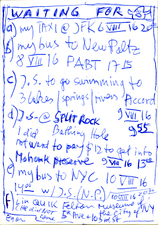 WAITING FOR
a) my TAXI @ JFK 6 VIII 16 20
b) my bus to New Paltz
8 VIII 16 PABT 17 15
c) J.S. to go swimming to
3 lakes springs rivers Accord
d) J.S. @ SPLIT ROCK 9 VIII 16
I did Bathing Hole 9 55
not want to pay $12 to get into
Mohonk Preserve 9 VIII 16
e) my bus to NYC 10 VIII 16
14 00 w/ J.S. (N.P.)
f) Museum
the City of NY
5 Ave + 103 St